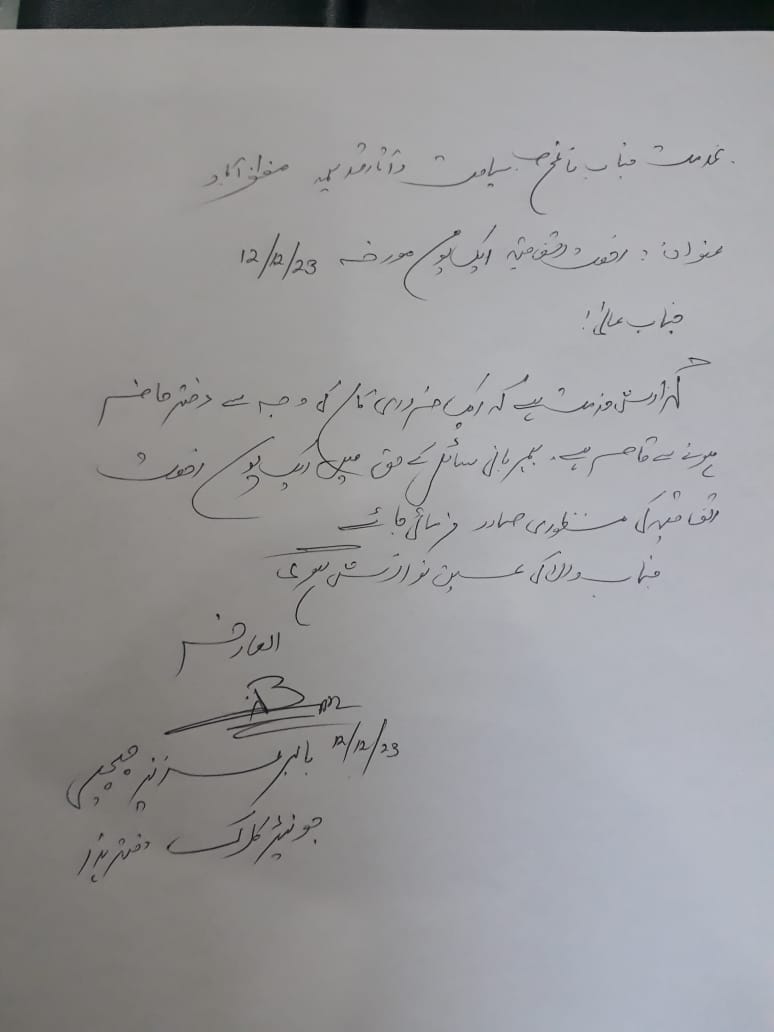 بخدمت جناب ناظم صاحب سیاحت و آثار قدیمہ مظفرآباد
عنوان: رخصت اتفاقیہ ایک یوم مورخہ 12/12/23
جناب عالی!
گزارش خدمت ہے کہ ایک ضروری کام کی وجہ سے دفتر حاضر
ہونے سے قاصر ہے۔ بمہربانی سائل کے حق میں ایک یوم رخصت
اتفاقیہ کی منظوری صادر فرمائی جائے
جناب والا کی عین نوازش ہو گی
العارض
12/12/23 بابر
جونیئر کلرک دفتر ہذا